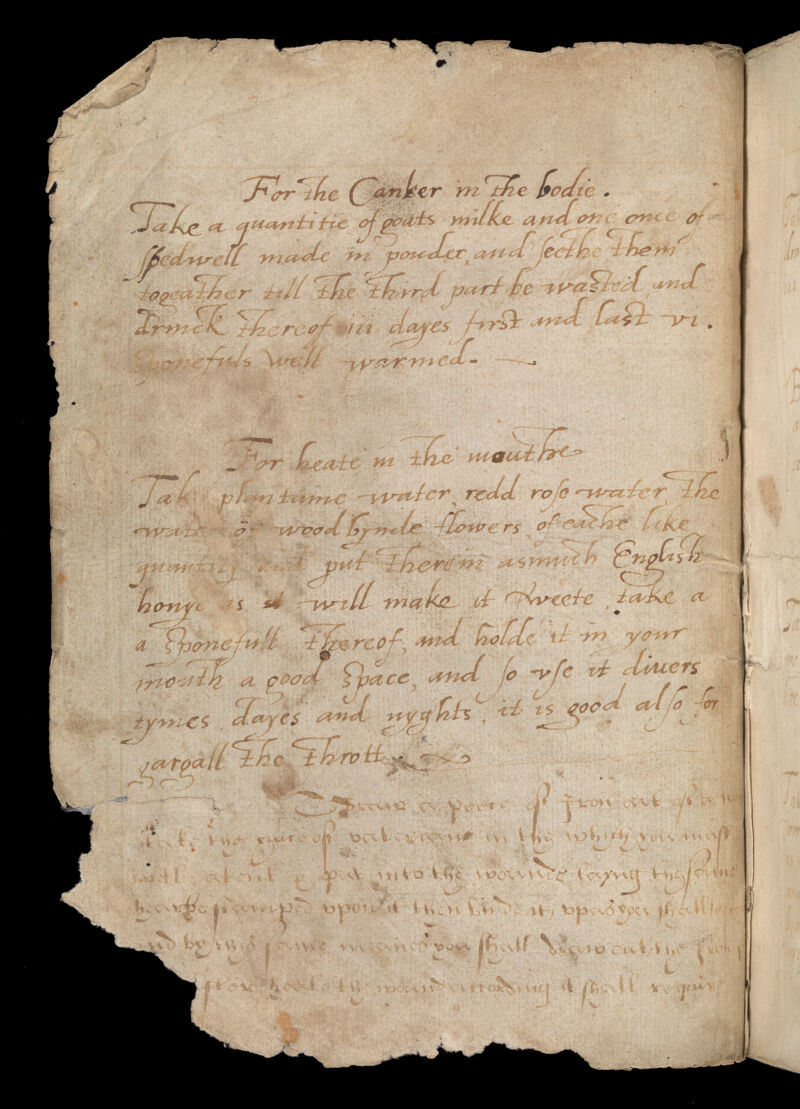 For the Canker in the bodie.
Take a quantitie of goats milke and one once of
spedwell made in pouder, and seethe them
togeather till the third part be wasted and
drinck thereof iii dayes first and last vi.
sponefuls well warmed.
For heate in the mouthe
Tak plantaine water, redd rose water, the
water of woodbynde flowers, of eache like
quantity and put therein asmuch English
honye as it will make it sweete, take a
a sponefull thereof, and holde it in your
mouth a good space, and so vse it diuers
tymes dayes and nyghts, it is good also for
gargall the thrott.
Draw a peece of Iron out of
take the guce of valerian in the which you must
well a tent & put into the wounde laying the same
hearbe stamped vpon it then binde it vp as you shall
and by this same meanes you shall draw out the Iron
heale the wound according it shall require